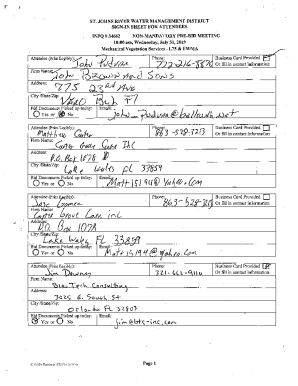 ST. JOHNS RIVER WATER MANAGEMENT DISTRICT
SIGN-IN SHEET FOR ATTENDEES
NON-MANDATORY PRE-BID MEETING
10:00 am, Wednesday, July 31, 2019
Mechanical Vegetation Services -
Attendee (Print Legibly): Phone: Business Card Provided
John 772-216-8876 Or fill in contact information
Firm Name:
John Brown and Sons
Address:
775 23rd Ave
City/State/Zip:
Vero Bch Fl
Bid Documents Picked up today: Email:
Yes or No
Attendee (Print Legibly): Phone: Business Card Provided
Matthew 863-528-7213 Or fill in contact information
Firm Name:
Grove Care Inc
Address:
P.O. Box 1078
City/State/Zip:
Lake Wales FL 33859
Bid Documents Picked up today: Email:
Yes or No Matt15194@Yahoo.Com
Attendee (Print Legibly): Phone: Business Card Provided
Or fill in contact information
Firm Name:
Grove Care Inc
Address:
P.O. Box 1078
City/State/Zip:
Lake Wales FL 33859
Bid Documents Picked up today: Email:
Yes or No Matt15194@yahoo.com
Attendee (Print Legibly): Phone: Business Card Provided
Jim 321-661-9110 Or fill in contact information
Firm Name:
Bio-Tech Consulting
Address:
3025 E. South St
City/State/Zip:
Orlando FL 32803
Bid Documents Picked up today: Email:
Yes or No jim@btc-inc.com
Page 1